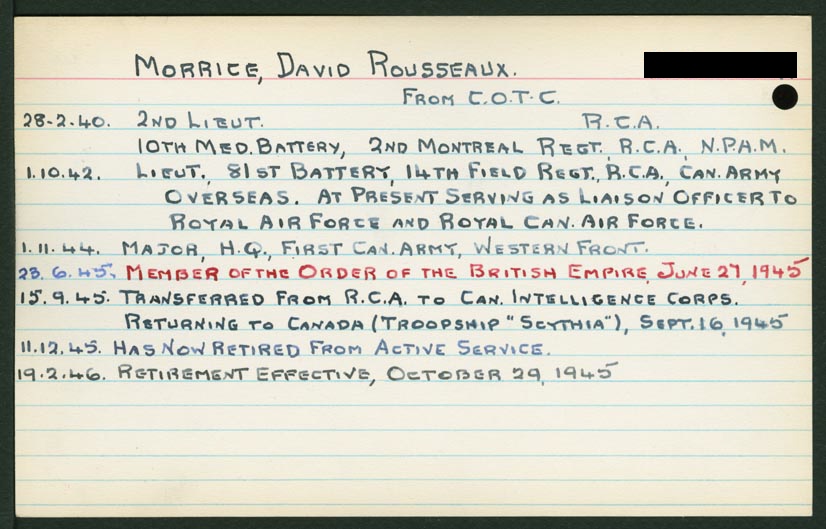 MORRICE, DAVID ROUSSEAUX.
FROM C.O.T.C.
28-2-40. 2ND LIEUT. R.C.A.
10TH MED. BATTERY, 2ND MONTREAL REGT., R.C.A., N.P.A.M.
1.10.42. LIEUT., 81ST BATTERY, 14TH FIELD REGT., R.C.A., CAN. ARMY
OVERSEAS. AT PRESENT SERVING AS LIAISON OFFICER TO
ROYAL AIR FORCE AND ROYAL CAN. AIR FORCE.
1.11.44. MAJOR, H.Q., FIRST CAN. ARMY, WESTERN FRONT.
28.6.45. MEMBER OF THE ORDER OF THE BRITISH EMPIRE, JUNE 27, 1945
15.9.45. TRANSFERRED FROM R.C.A. TO CAN. INTELLIGENCE CORPS.
RETURNING TO CANADA (TROOPSHIP "SCYTHIA"), SEPT. 16, 1945
11.12.45. HAS NOW RETIRED FROM ACTIVE SERVICE.
19.2.46. RETIREMENT EFFECTIVE, OCTOBER 29, 1945